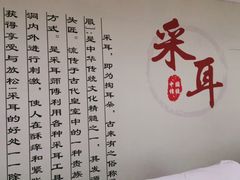 采耳
采耳，即为掏耳朵，古来有“俗称
服”：是中华传统文化精髓之一，其发
头匠。流传于古代皇室中的一种贵族
方式。是采耳师傅利用各种采耳工具
洞内外进行刺激，使人在酥痒和紧
获得享受与放松！采耳的好处：一除